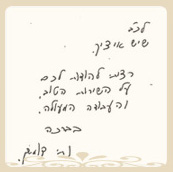 לכב'
שיש איציק.
רצינו להודות לכם
על השירות הטוב.
והעבודה המעולה.
בברכה